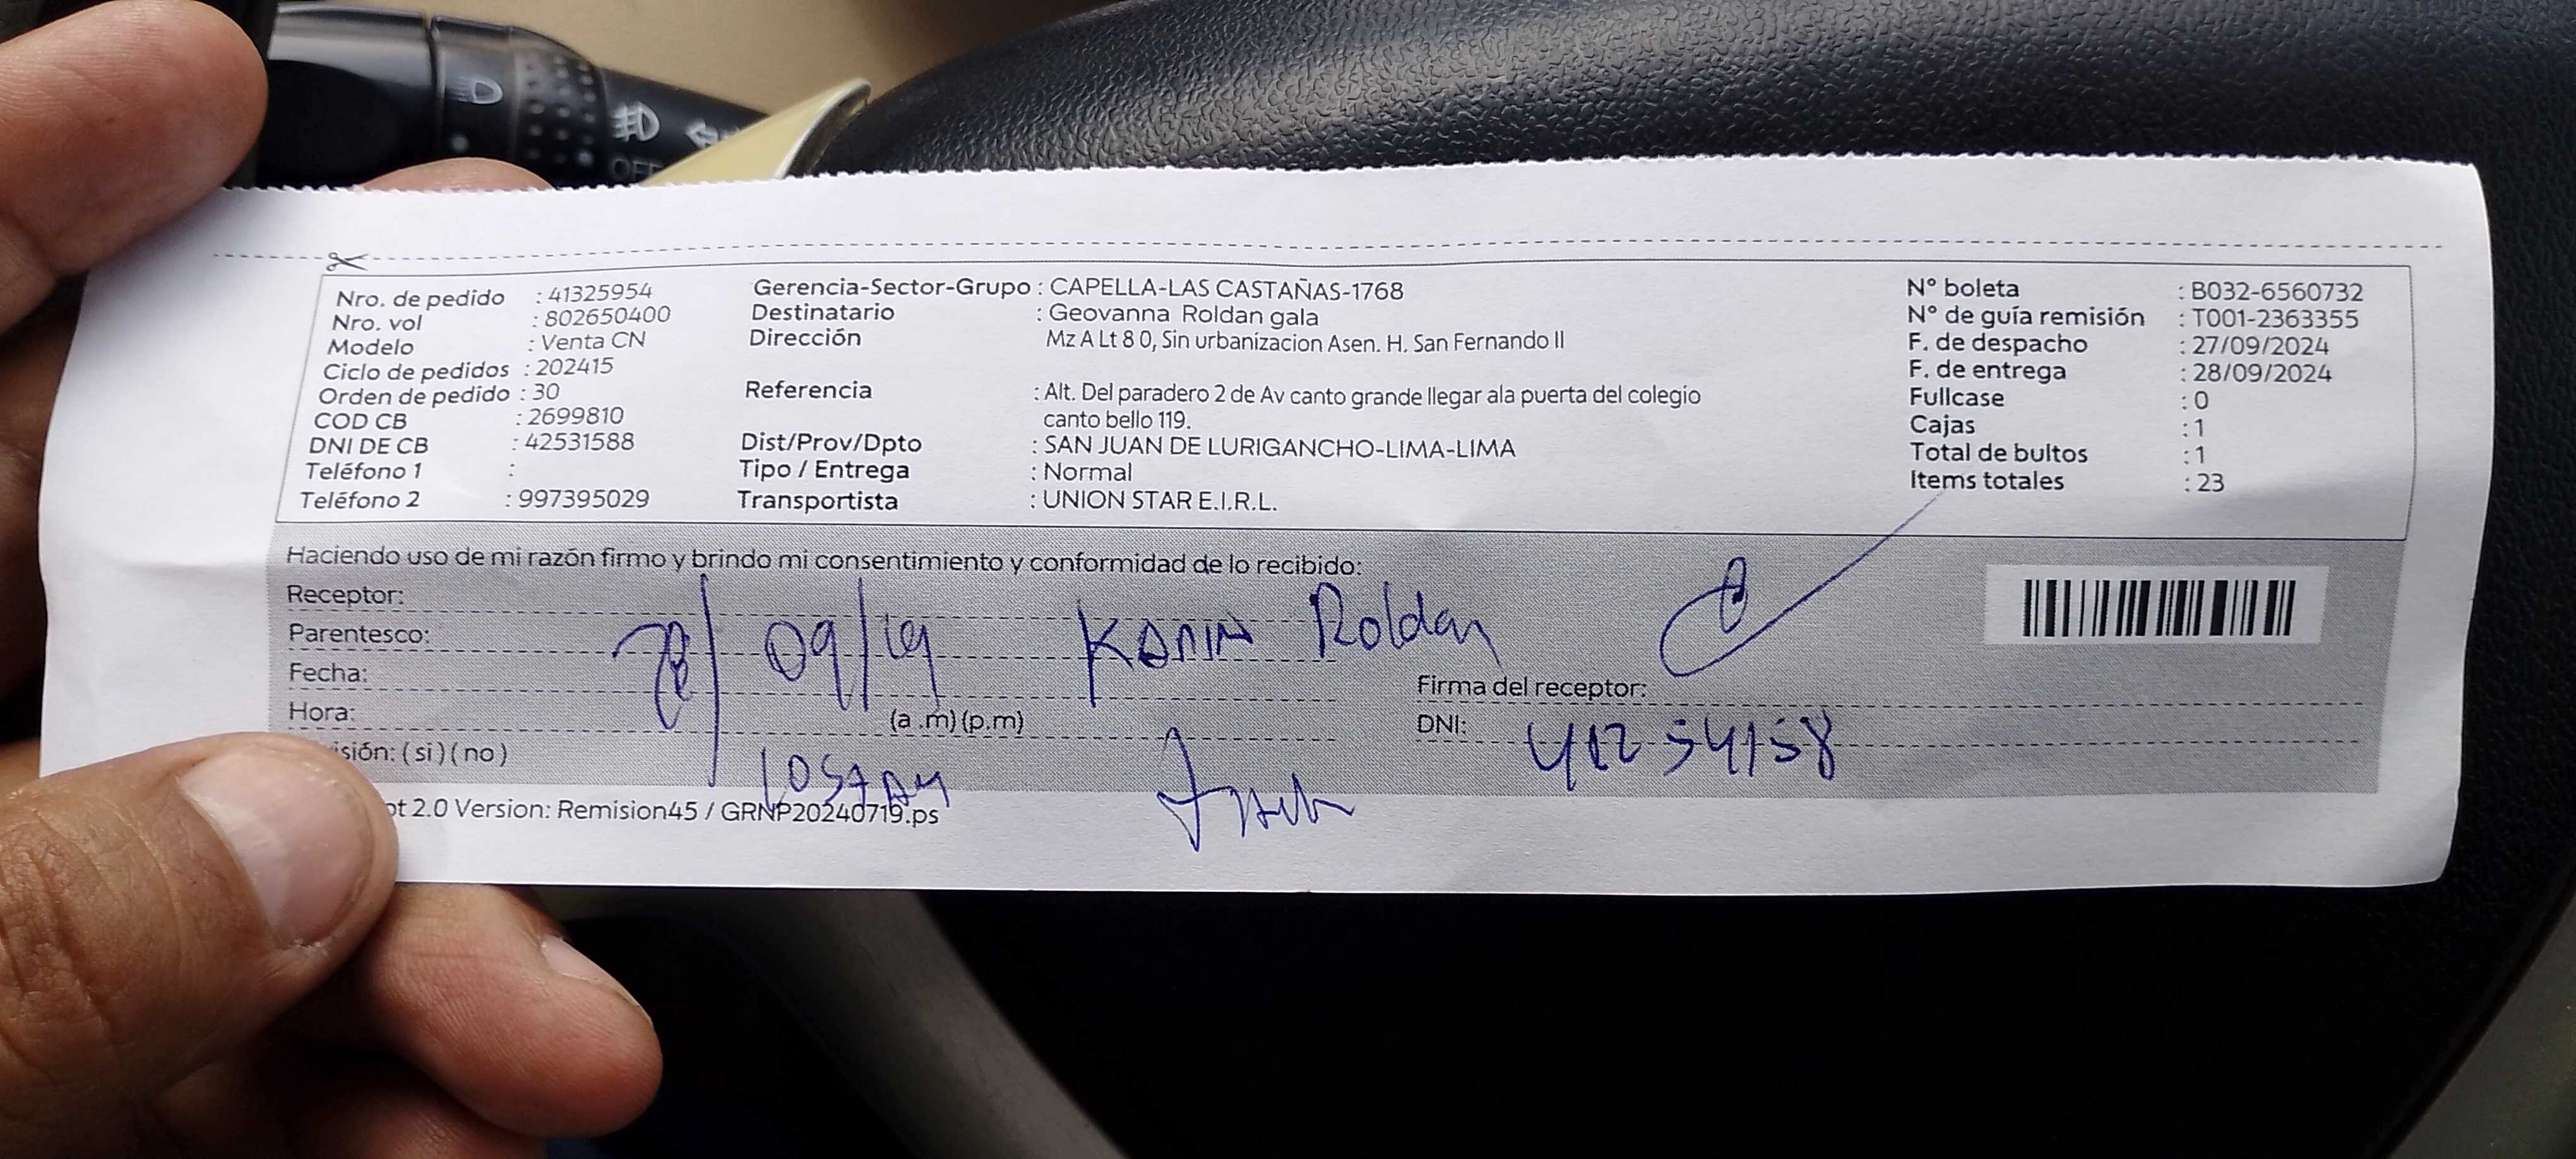 OFF
Nro. de pedido : 41325954
Nro. vol : 802650400
Modelo : Venta CN
Ciclo de pedidos : 202415
Orden de pedido : 30
COD CB : 2699810
DNI DE CB : 42531588
Teléfono 1 :
Teléfono 2 : 997395029
Gerencia-Sector-Grupo : CAPELLA-LAS CASTAÑAS-1768
Destinatario : Geovanna Roldan gala
Dirección Mz A Lt 8 0, Sin urbanizacion Asen. H. San Fernando II
Referencia : Alt. Del paradero 2 de Av canto grande llegar ala puerta del colegio
canto bello 119.
Dist/Prov/Dpto : SAN JUAN DE LURIGANCHO-LIMA-LIMA
Tipo / Entrega : Normal
Transportista : UNION STAR E.I.R.L.
N° boleta : B032-6560732
N° de guía remisión : T001-2363355
F. de despacho : 27/09/2024
F. de entrega : 28/09/2024
Fullcase : 0
Cajas : 1
Total de bultos : 1
Items totales : 23
Haciendo uso de mi razón firmo y brindo mi consentimiento y conformidad de lo recibido:
Receptor:
Parentesco:
Karin Roldan
Fecha:
Hora: (a .m)(p.m)
Firma del receptor:
DNI: 41254158
isión: ( si ) ( no )
pt 2.0 Version: Remision45 / GRNP20240719.ps